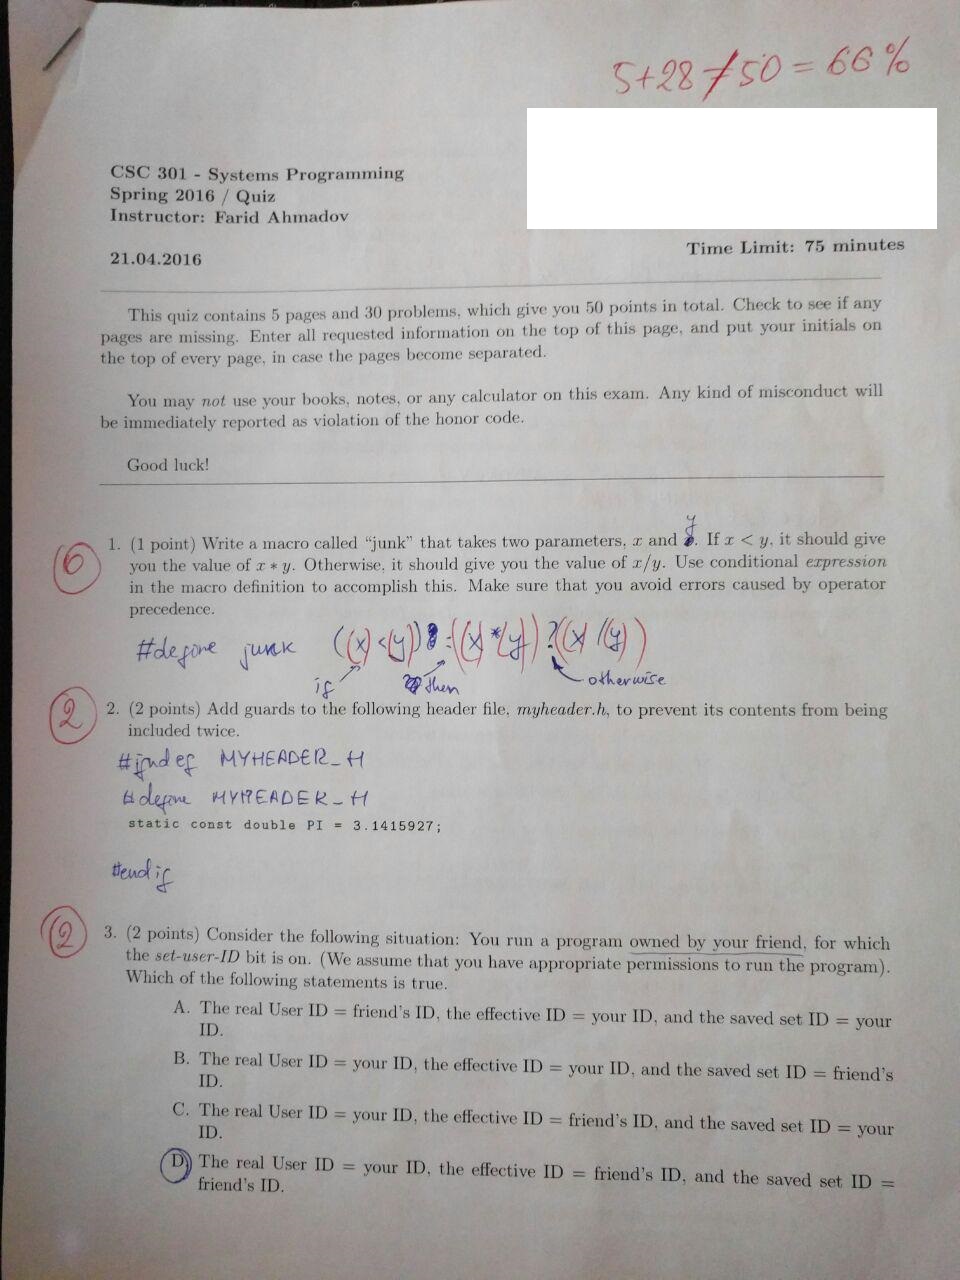 5+28/50 = 66%
CSC 301 - Systems Programming
Spring 2016 / Quiz
Instructor: Farid Ahmadov
21.04.2016
Time Limit: 75 minutes
This quiz contains 5 pages and 30 problems, which give you 50 points in total. Check to see if any
pages are missing. Enter all requested information on the top of this page, and put your initials on
the top of every page, in case the pages become separated.
You may not use your books, notes, or any calculator on this exam. Any kind of misconduct will
be immediately reported as violation of the honor code.
Good luck!
y
1. (1 point) Write a macro called “junk” that takes two parameters, x and . If x < y, it should give
you the value of x * y. Otherwise, it should give you the value of x/y. Use conditional expression
in the macro definition to accomplish this. Make sure that you avoid errors caused by operator
precedence.
#define junk (((x) < (y)) : ((x) * (y)) ? ((x) / (y)))
if then otherwise
2
2. (2 points) Add guards to the following header file, myheader.h, to prevent its contents from being
included twice.
#ifndef MYHEADER_H
#define MYHEADER_H
static const double PI = 3.1415927;
#endif
2
3. (2 points) Consider the following situation: You run a program owned by your friend, for which
the set-user-ID bit is on. (We assume that you have appropriate permissions to run the program).
Which of the following statements is true.
A. The real User ID = friend's ID, the effective ID = your ID, and the saved set ID = your
ID.
B. The real User ID = your ID, the effective ID = your ID, and the saved set ID = friend's
ID.
C. The real User ID = your ID, the effective ID = friend's ID, and the saved set ID = your
ID.
D. The real User ID = your ID, the effective ID = friend's ID, and the saved set ID =
friend's ID.